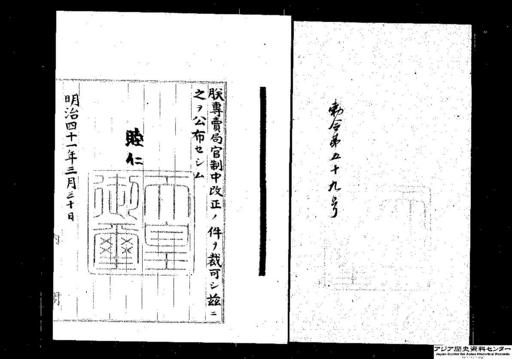 勅令第五十九号
朕専賣局官制中改正ノ件ヲ裁可シ茲ニ
之ヲ公布セシム
睦仁
天皇御璽
明治四十一年三月三十日
内閣
アジア歴史資料センター
Japan Center for Asian Historical Records